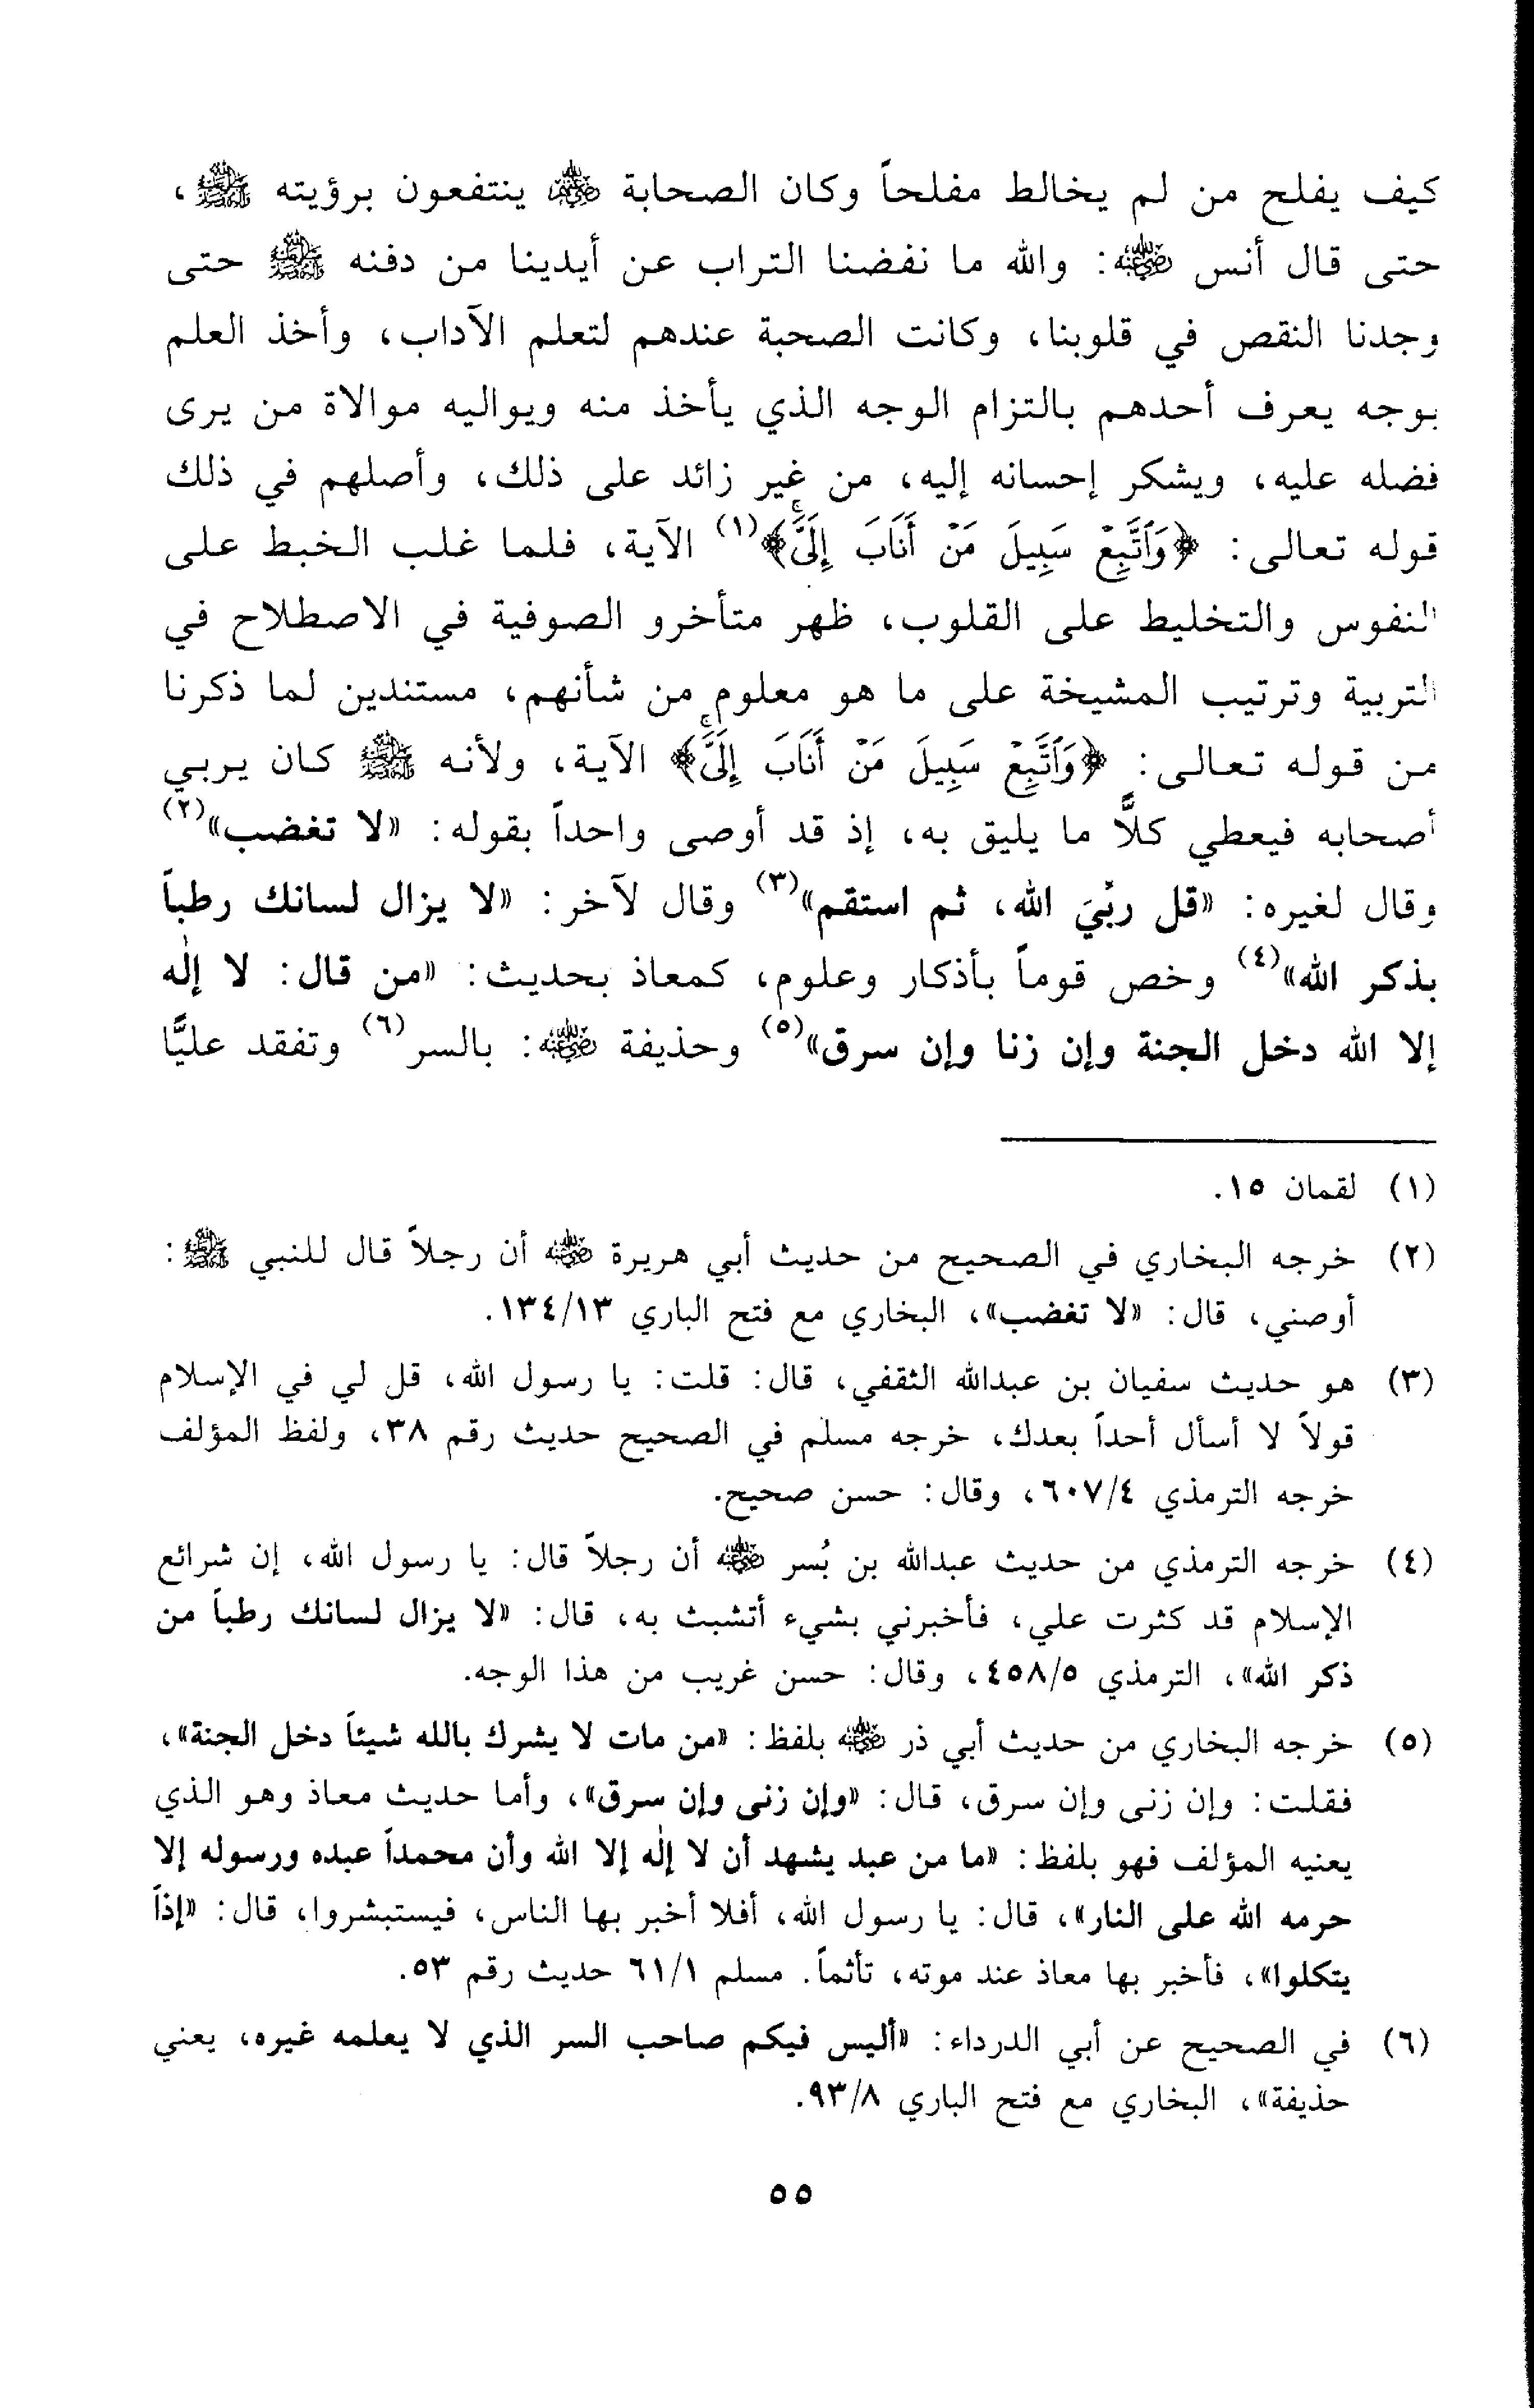 كيف يفلح من لم يخالط مفلحاً وكان الصحابة ﵃ ينتفعون برؤيته ﷺ،
حتى قال أنس ﵁: والله ما نفضنا التراب عن أيدينا من دفنه ﷺ حتى
وجدنا النقص في قلوبنا، وكانت الصحبة عندهم لتعلم الآداب، وأخذ العلم
بوجه يعرف أحدهم بالتزام الوجه الذي يأخذ منه ويواليه موالاة من يرى
فضله عليه، ويشكر إحسانه إليه، من غير زائد على ذلك، وأصلهم في ذلك
قوله تعالى: ﴿وَٱتَّبِعْ سَبِيلَ مَنْ أَنَابَ إِلَيَّۚ﴾(١) الآية، فلما غلب الخبط على
النفوس والتخليط على القلوب، ظهر متأخرو الصوفية في الاصطلاح في
التربية وترتيب المشيخة على ما هو معلوم من شأنهم، مستندين لما ذكرنا
من قوله تعالى: ﴿وَٱتَّبِعْ سَبِيلَ مَنْ أَنَابَ إِلَيَّۚ﴾ الآية، ولأنه ﷺ كان يربي
أصحابه فيعطي كلاًّ ما يليق به، إذ قد أوصى واحداً بقوله: «لا تغضب»(٢)
وقال لغيره: «قل ربّيَ الله، ثم استقم»(٣) وقال لآخر: «لا يزال لسانك رطباً
بذكر الله»(٤) وخص قوماً بأذكار وعلوم، كمعاذ بحديث: «من قال: لا إلٰه
إلا الله دخل الجنة وإن زنا وإن سرق»(٥) وحذيفة ﵁: بالسر(٦) وتفقد عليًّا
(١) لقمان ١٥.
(٢) خرجه البخاري في الصحيح من حديث أبي هريرة ﵁ أن رجلاً قال للنبي ﷺ:
أوصني، قال: «لا تغضب»، البخاري مع فتح الباري ١٣٤/١٣.
(٣) هو حديث سفيان بن عبدالله الثقفي، قال: قلت: يا رسول الله، قل لي في الإسلام
قولاً لا أسأل أحداً بعدك، خرجه مسلم في الصحيح حديث رقم ٣٨، ولفظ المؤلف
خرجه الترمذي ٦٠٧/٤، وقال: حسن صحيح.
(٤) خرجه الترمذي من حديث عبدالله بن بُسر ﵁ أن رجلاً قال: يا رسول الله، إن شرائع
الإسلام قد كثرت علي، فأخبرني بشيء أتشبث به، قال: «لا يزال لسانك رطباً من
ذكر الله»، الترمذي ٤٥٨/٥، وقال: حسن غريب من هذا الوجه.
(٥) خرجه البخاري من حديث أبي ذر ﵁ بلفظ: «من مات لا يشرك بالله شيئاً دخل الجنة»،
فقلت: وإن زنى وإن سرق، قال: «وإن زنى وإن سرق»، وأما حديث معاذ وهو الذي
يعنيه المؤلف فهو بلفظ: «ما من عبد يشهد أن لا إلٰه إلا الله وأن محمداً عبده ورسوله إلا
حرمه الله على النار»، قال: يا رسول الله، أفلا أخبر بها الناس، فيستبشروا، قال: «إذاً
يتكلوا»، فأخبر بها معاذ عند موته، تأثماً. مسلم ٦١/١ حديث رقم ٥٣.
(٦) في الصحيح عن أبي الدرداء: «أليس فيكم صاحب السر الذي لا يعلمه غيره، يعني
حذيفة»، البخاري مع فتح الباري ٩٣/٨.
٥٥